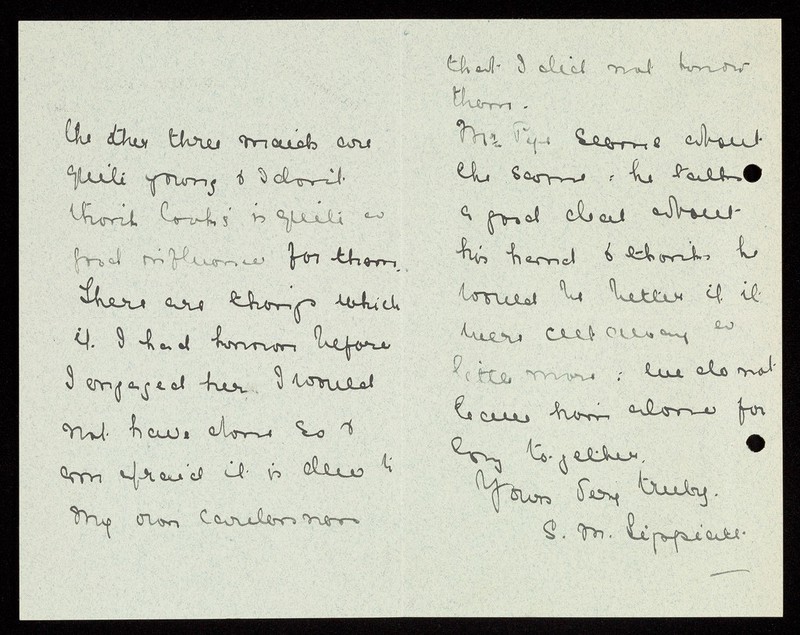 The other three maids are
quite young & I don't
think Cook's is quite a
good influence for them.
There are things which
if I had known before
I engaged her I would
not have done so &
am afraid it is due to
my own carelessness
that I did not know
them.
Mr. Pye seems about
the same: he talks
a good deal about
his hand & thinks he
would be better if it
were cut away a
little more: we do not
leave him alone for
long together.
Yours very truly.
S. M.